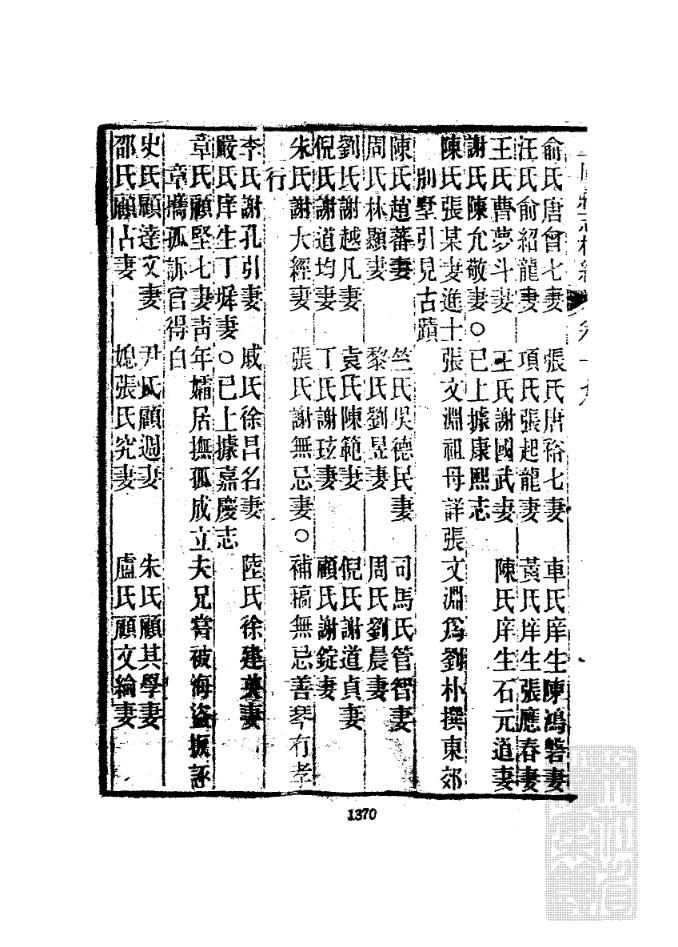 俞氏唐曾七妻 張氏唐裕七妻 車氏庠生陳鴻磐妻
汪氏俞紹龍妻 項氏張起龍妻 黃氏庠生張應春妻
王氏曹夢斗妻 王氏謝國武妻 陳氏庠生石元道妻
謝氏陳允敬妻○已上據康熙志
陳氏張某妻進士張文淵祖母詳張文淵爲劉朴撰東郊
別墅引見古蹟
陳氏趙蕃妻 竺氏吳德民妻 司馬氏管智妻
周氏林顯妻 黎氏劉昱妻 周氏劉晨妻
劉氏謝越凡妻 袁氏陳範妻 倪氏謝道貞妻
倪氏謝道均妻 丁氏謝玹妻 顧氏謝錠妻
朱氏謝大經妻 張氏謝無忌妻○補稿無忌善琴有孝
行
李氏謝孔引妻 戚氏徐昌名妻 陸氏徐建英妻
嚴氏庠生丁妻○已上據嘉慶志
章氏顧堅七妻靑年孀居撫孤成立夫兄嘗被海盜扳誣
章攜孤訴官得白
史氏顧達文妻 尹氏顧週妻 朱氏顧其學妻
邵氏顧占妻 張氏究妻 盧氏顧文綸妻
1370